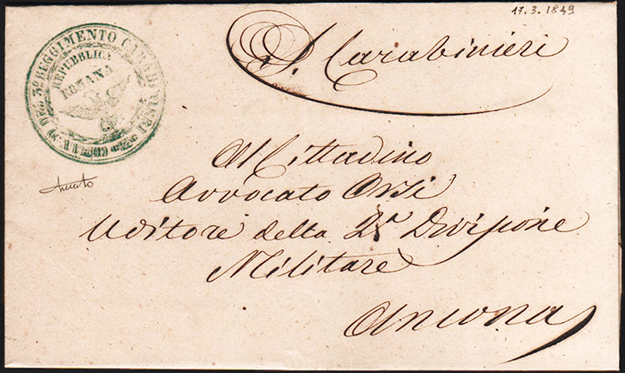 17.3.1849
S. Carabinieri
3º REGGIMENTO CARABINIERI
REPUBBLICA
ROMANA
Al Cittadino
Avvocato Orsi
Uditore della 2ª Divisione
Militare
Ancona